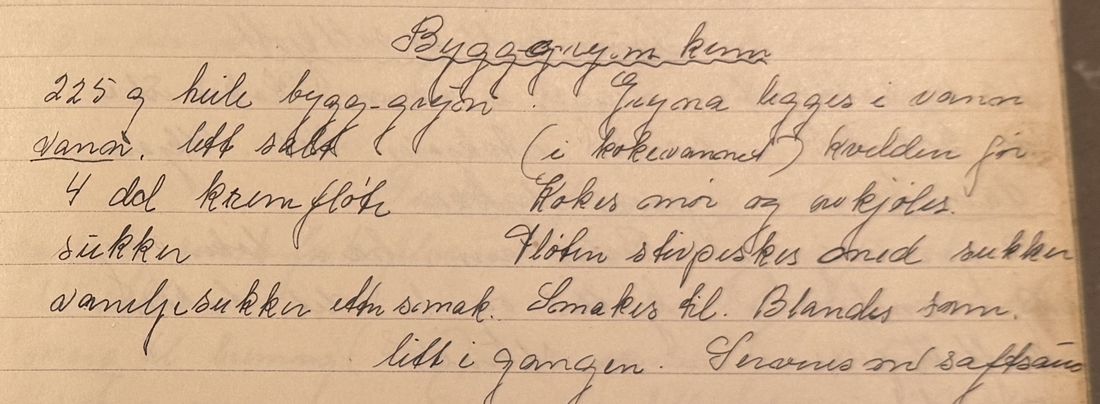 Bygg-gryn krem
225 g heile bygg-gryn. Gryna legges i vann
vann. litt salt (i kokevannet) kvelden før
4 dl kremfløte Kokes mør og avkjøles.
sukker Fløten stivpiskes med sukker
vaniljesukker etter smak. Smakes til. Blandes sam.
litt i gangen. Serveres m/ saftsaus